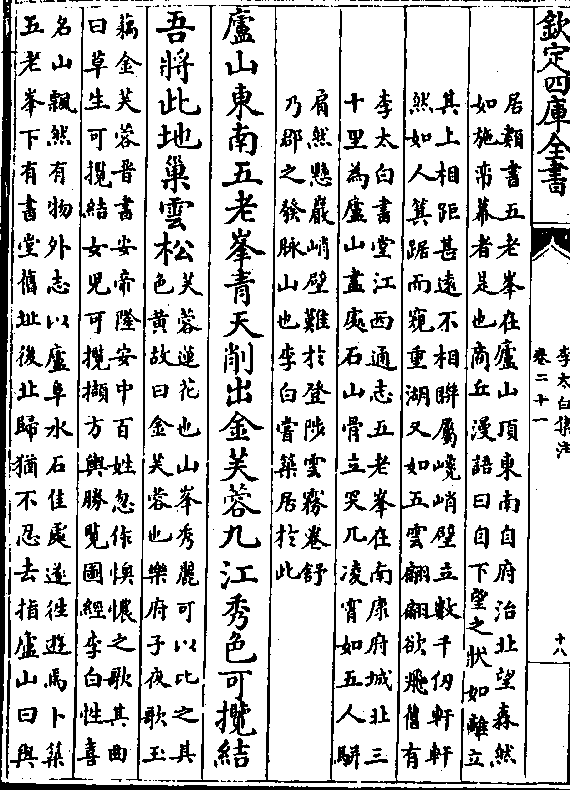 欽定四庫全書
李太白集注
卷二十一
十八
居類書五老峯在廬山頂東南自府治北望森然
如施帟幕者是也商丘漫語曰自下望之狀如離立
其上相距甚遠不相聨屬巉峭壁立數千仞軒軒
然如人箕踞而窺重湖又如五雲翩翩欲飛舊有
李太白書堂江西通志五老峯在南康府城北三
十里為廬山盡處石山骨立突兀凌霄如五人駢
肩然懸巖峭壁難於登陟雲霧卷舒
乃郡之發脉山也李白嘗築居於此
廬山東南五老峯青天削出金芙蓉九江秀色可攬結
吾將此地巢雲松
芙蓉蓮花也山峯秀麗可以比之其
色黄故曰金芙蓉也樂府子夜歌玉
藕金芙蓉晋書安帝隆安中百姓忽作懊憹之歌其曲
曰草生可攬結女兒可攬擷方輿勝覽圖經李白性喜
名山飄然有物外志以廬阜水石佳處遂往遊焉卜築
五老峯下有書堂舊址後北歸猶不忍去指廬山曰與